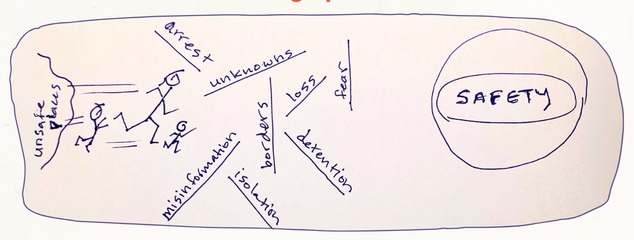 unsafe
places
arrest
unknowns
loss
fear
borders
misinformation
isolation
detention
SAFETY